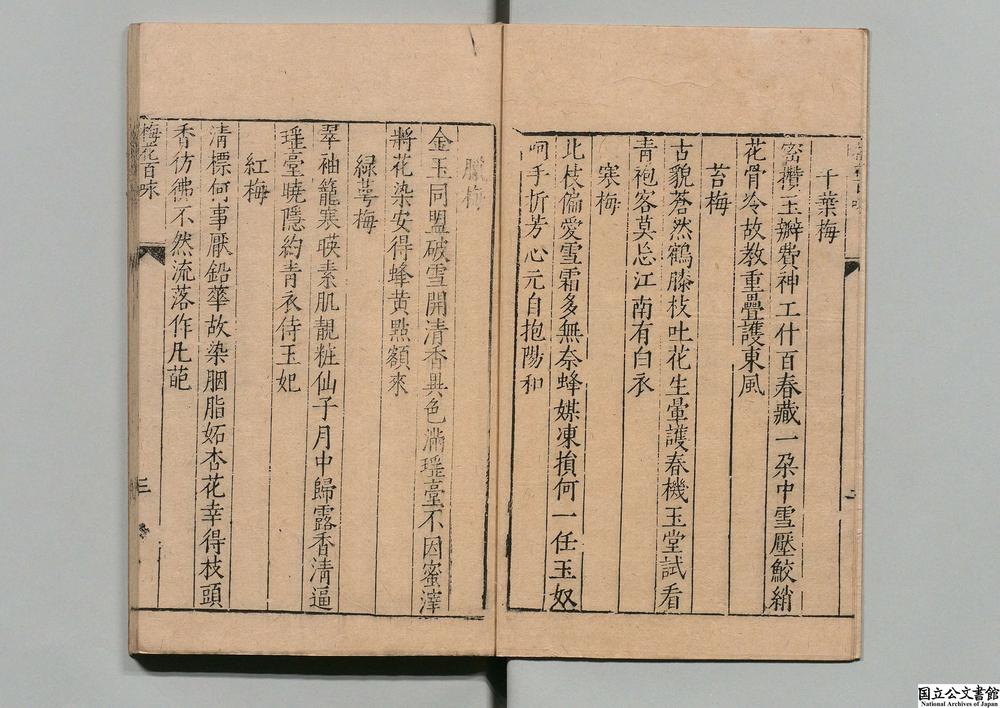 千葉梅
密攢玉瓣費神工什百春藏一朶中雪壓鮫綃
花骨冷故教重疊護東風
苔梅
古貌蒼然鶴膝枝吐花生暈護春機玉堂試看
青袍客莫忘江南有白衣
寒梅
北枝偏愛雪霜多無奈蜂媒凍損何一任玉奴
呵手折芳心元自抱陽和
臘梅
金玉同盟破雪開清香異色滿瑶臺不因蜜滓
將花染安得蜂黄點額來
緑萼梅
翠袖籠寒暎素肌靚粧仙子月中歸露香清逼
瑶臺曉隱約青衣侍玉妃
紅梅
清標何事厭鉛華故染胭脂妬杏花幸得枝頭
香彷彿不然流落作凡葩
梅花百咏
三
国立公文書館
National Archives of Japan